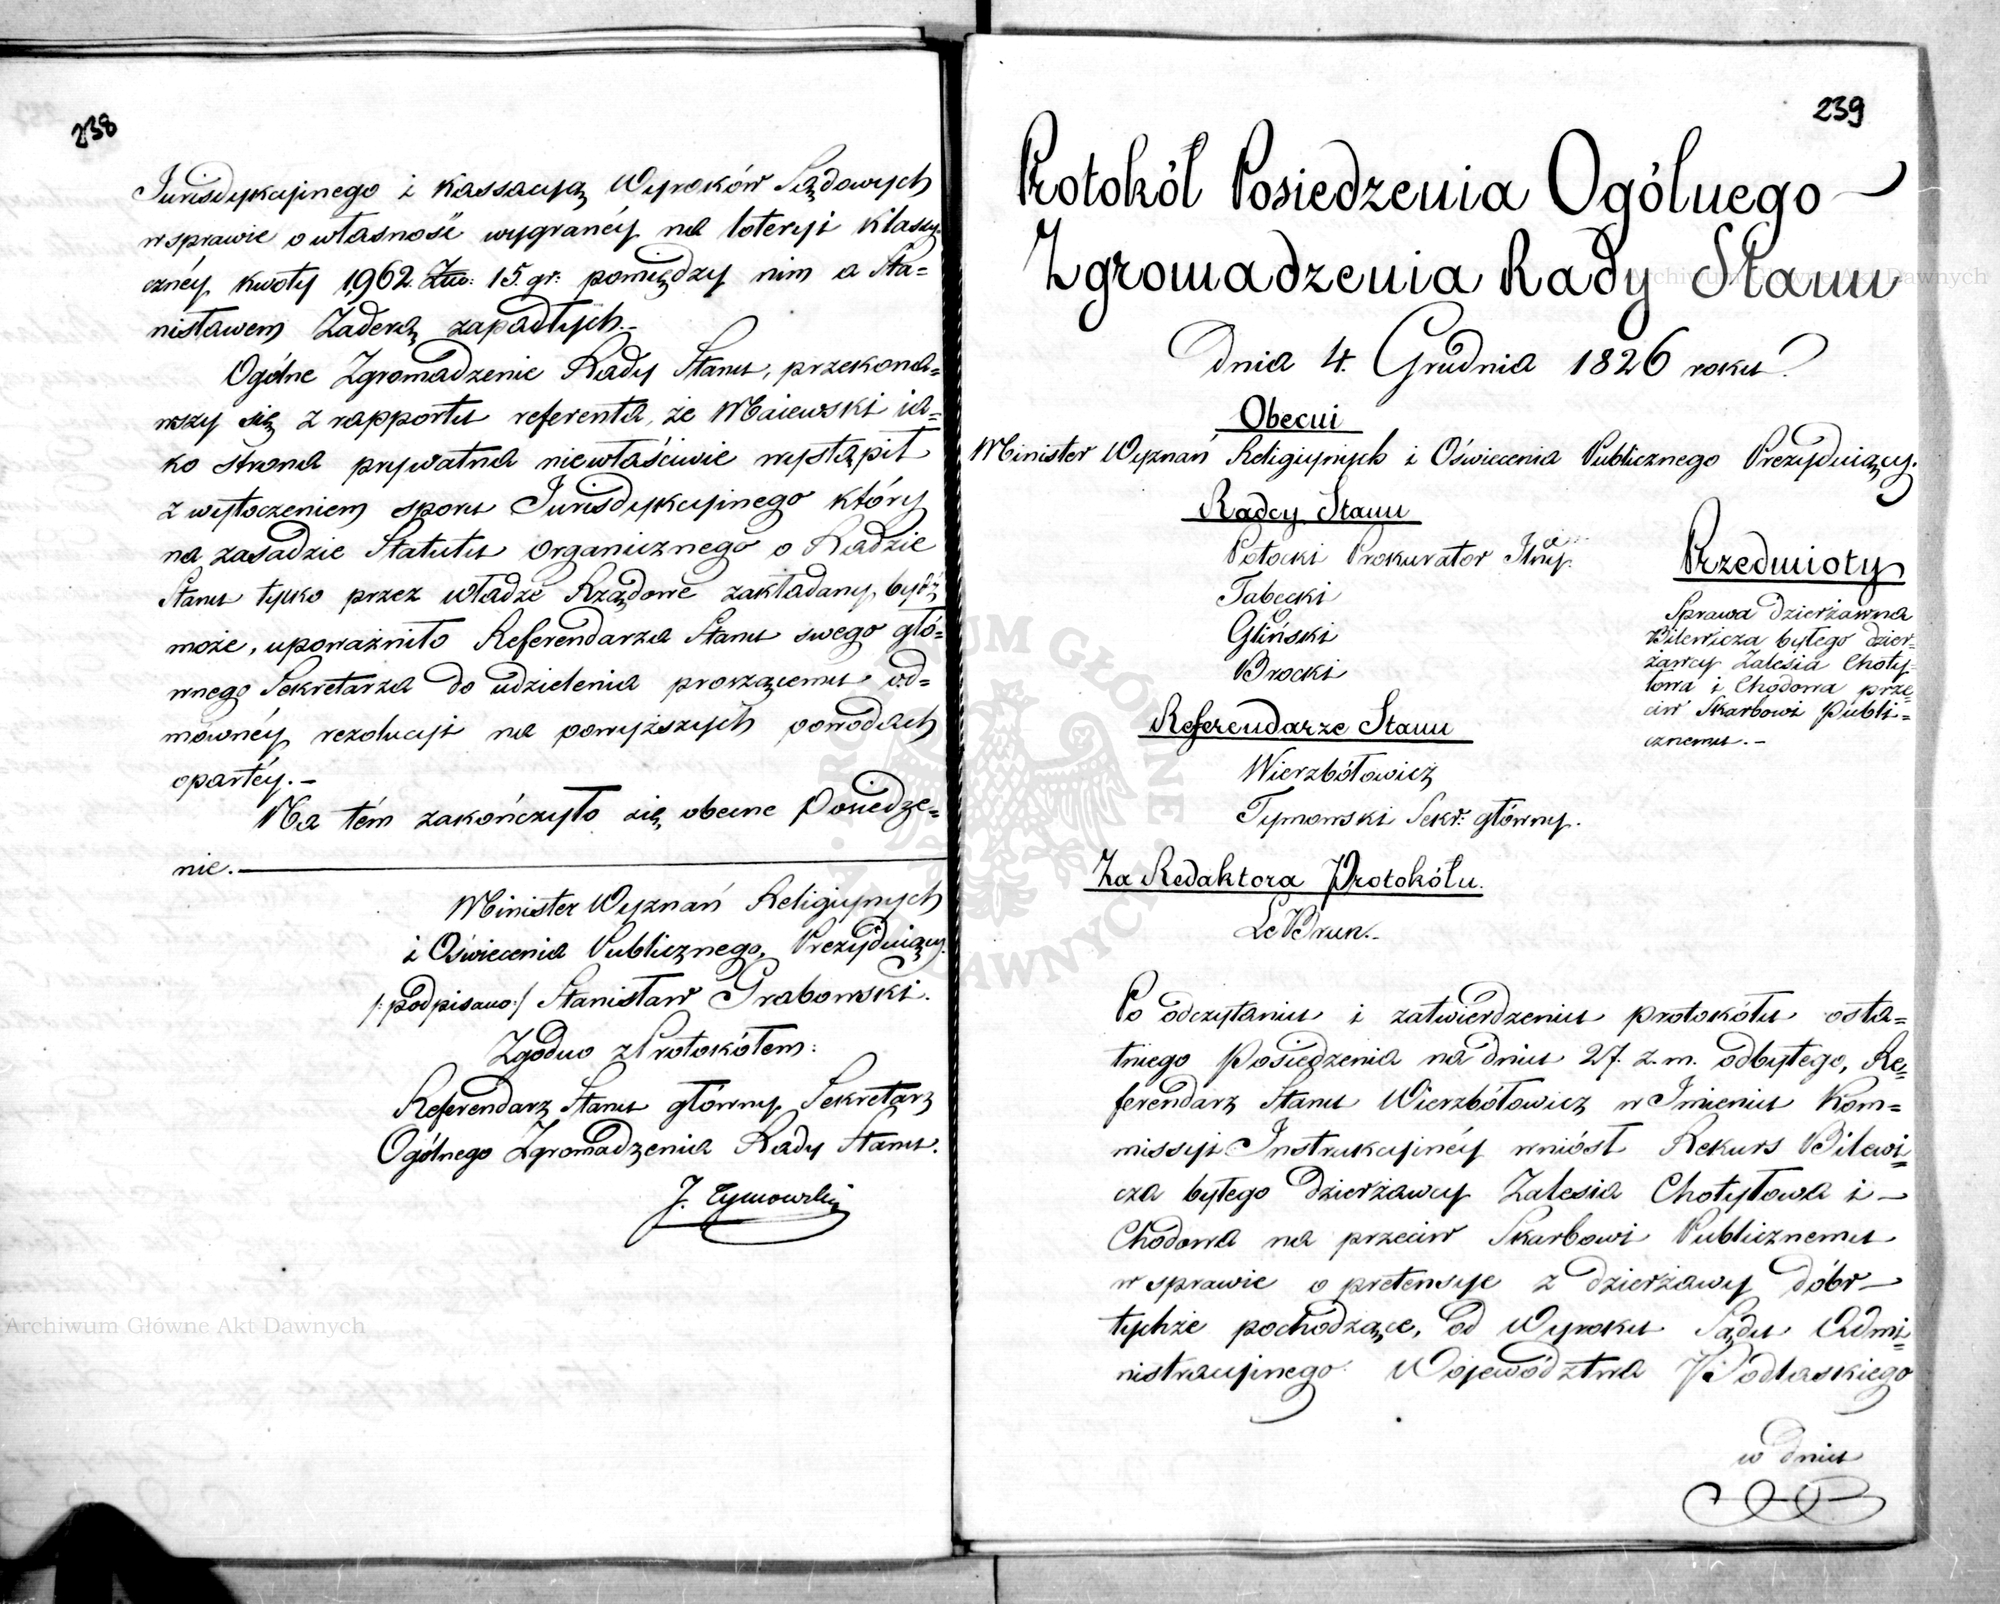 238
Jurisdykcyinego i kassacyą Wyroków Sądowych
w sprawie o własność wygranéy na loteryi klassy-
cznéy kwoty 1,962. Złw: 15. gr: pomiędzy nim a Sta=
nisławem Zaderą zapadłych.-
Ogólne Zgromadzenie Rady Stanu, przekona=
wszy się z rapportu referenta, że Maiewski ia=
ko strona prywatna niewłaściwie wystąpił
z wytoczeniem sporu Jurisdykcyinego który
na zasadzie Statutu organicznego o Radzie
Stanu tylko przez władze Rządowe zakładany być
może, upoważniło Referendarza Stanu swego głó=
wnego Sekretarza do udzielenia proszącemu od=
mownéy rezolucyi na powyższych powodach
opartéy.-
Na tém zakończyło się obecne Posiedze=
nie.
Minister Wyznań Religiynych
i Oświecenia Publicznego, Prezyduiący.
/:podpisano:/ Stanisław Grabowski.
Zgodno z Protokółem:
Referendarz Stanu główny Sekretarz
Ogólnego Zgromadzenia Rady Stanu.
J. Tymowski
239
Protokół Posiedzenia Ogólnego
Zgromadzenia Rady Stanu
dnia 4. Grudnia 1826 roku.
Obecni
Minister Wyznań Religiynych i Oświecenia Publicznego Prezyduiący.
Radcy Stanu
Potocki Prokurator
Tabecki
Gliński
Brocki
Referendarze Stanu
Wierzbółowicz
Tymowski Sekr: główny.
Za Redaktora Protokółu.
Le Brun.-
Przedmioty
Sprawa dzierżawna
Bilewicza byłego dzier-
żawcy Zalesia Choty-
łowa i Chodowa prze-
ciw Skarbowi Publi=
cznemu.-
Po odczytaniu i zatwierdzeniu protokółu osta=
tniego Posiedzenia na dniu 27. z. m. odbytego, Re-
ferendarz Stanu Wierzbółowicz w Imieniu Kom=
missyi Instrukcyinéy wniósł Rekurs Bilewi-
cza byłego dzierżawcy Zalesia Chotyłowa i
Chodowa na przeciw Skarbowi Publicznemu
w sprawie o pretensye z dzierżawy dóbr
tychże pochodzące, od Wyroku Sądu Admi-
nistracyinego Województwa Podlaskiego
w dniu
Archiwum Główne Akt Dawnych
Archiwum Główne Akt Dawnych
ARCHIWUM GŁÓWNE AKT DAWNYCH